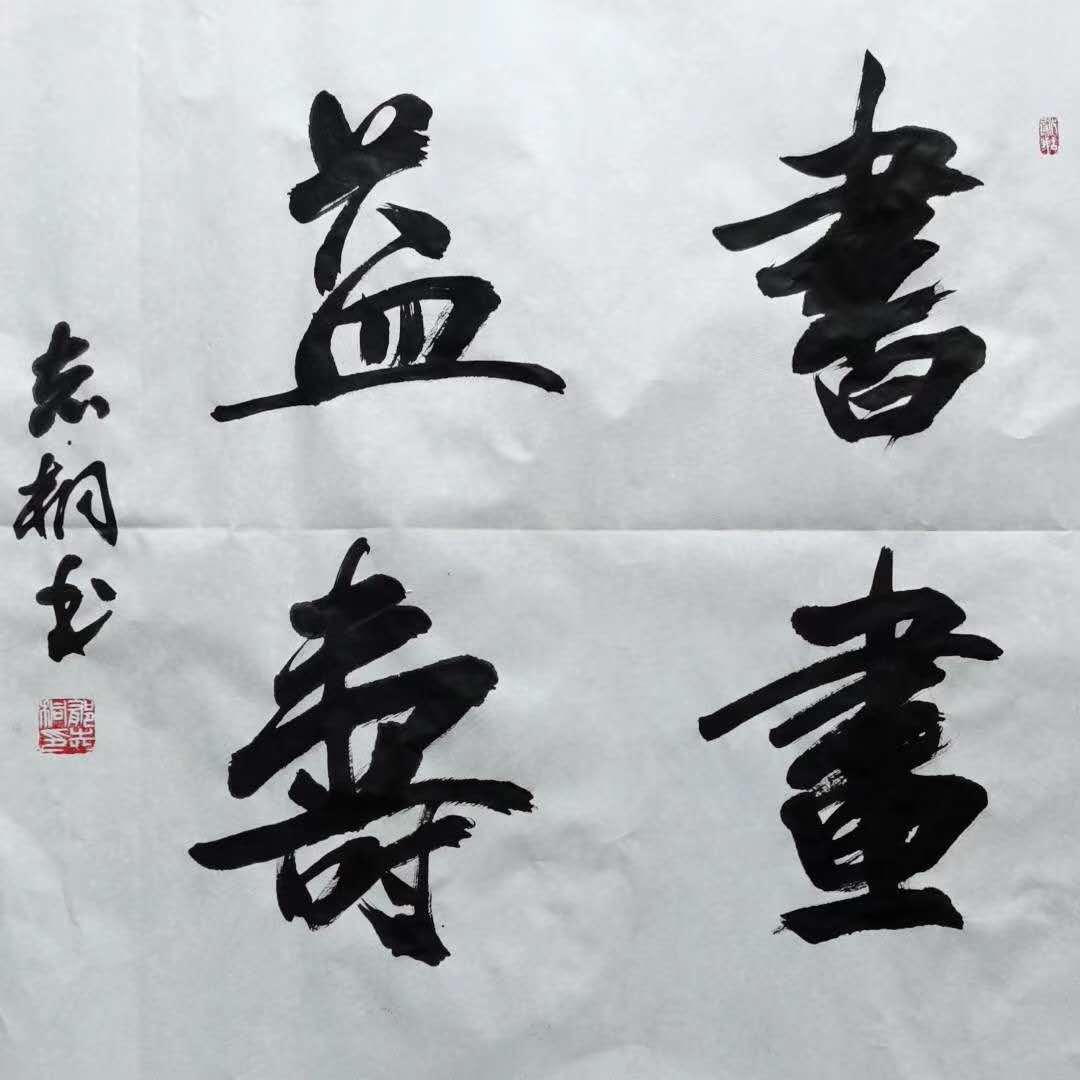 書畫
益壽
志桐书